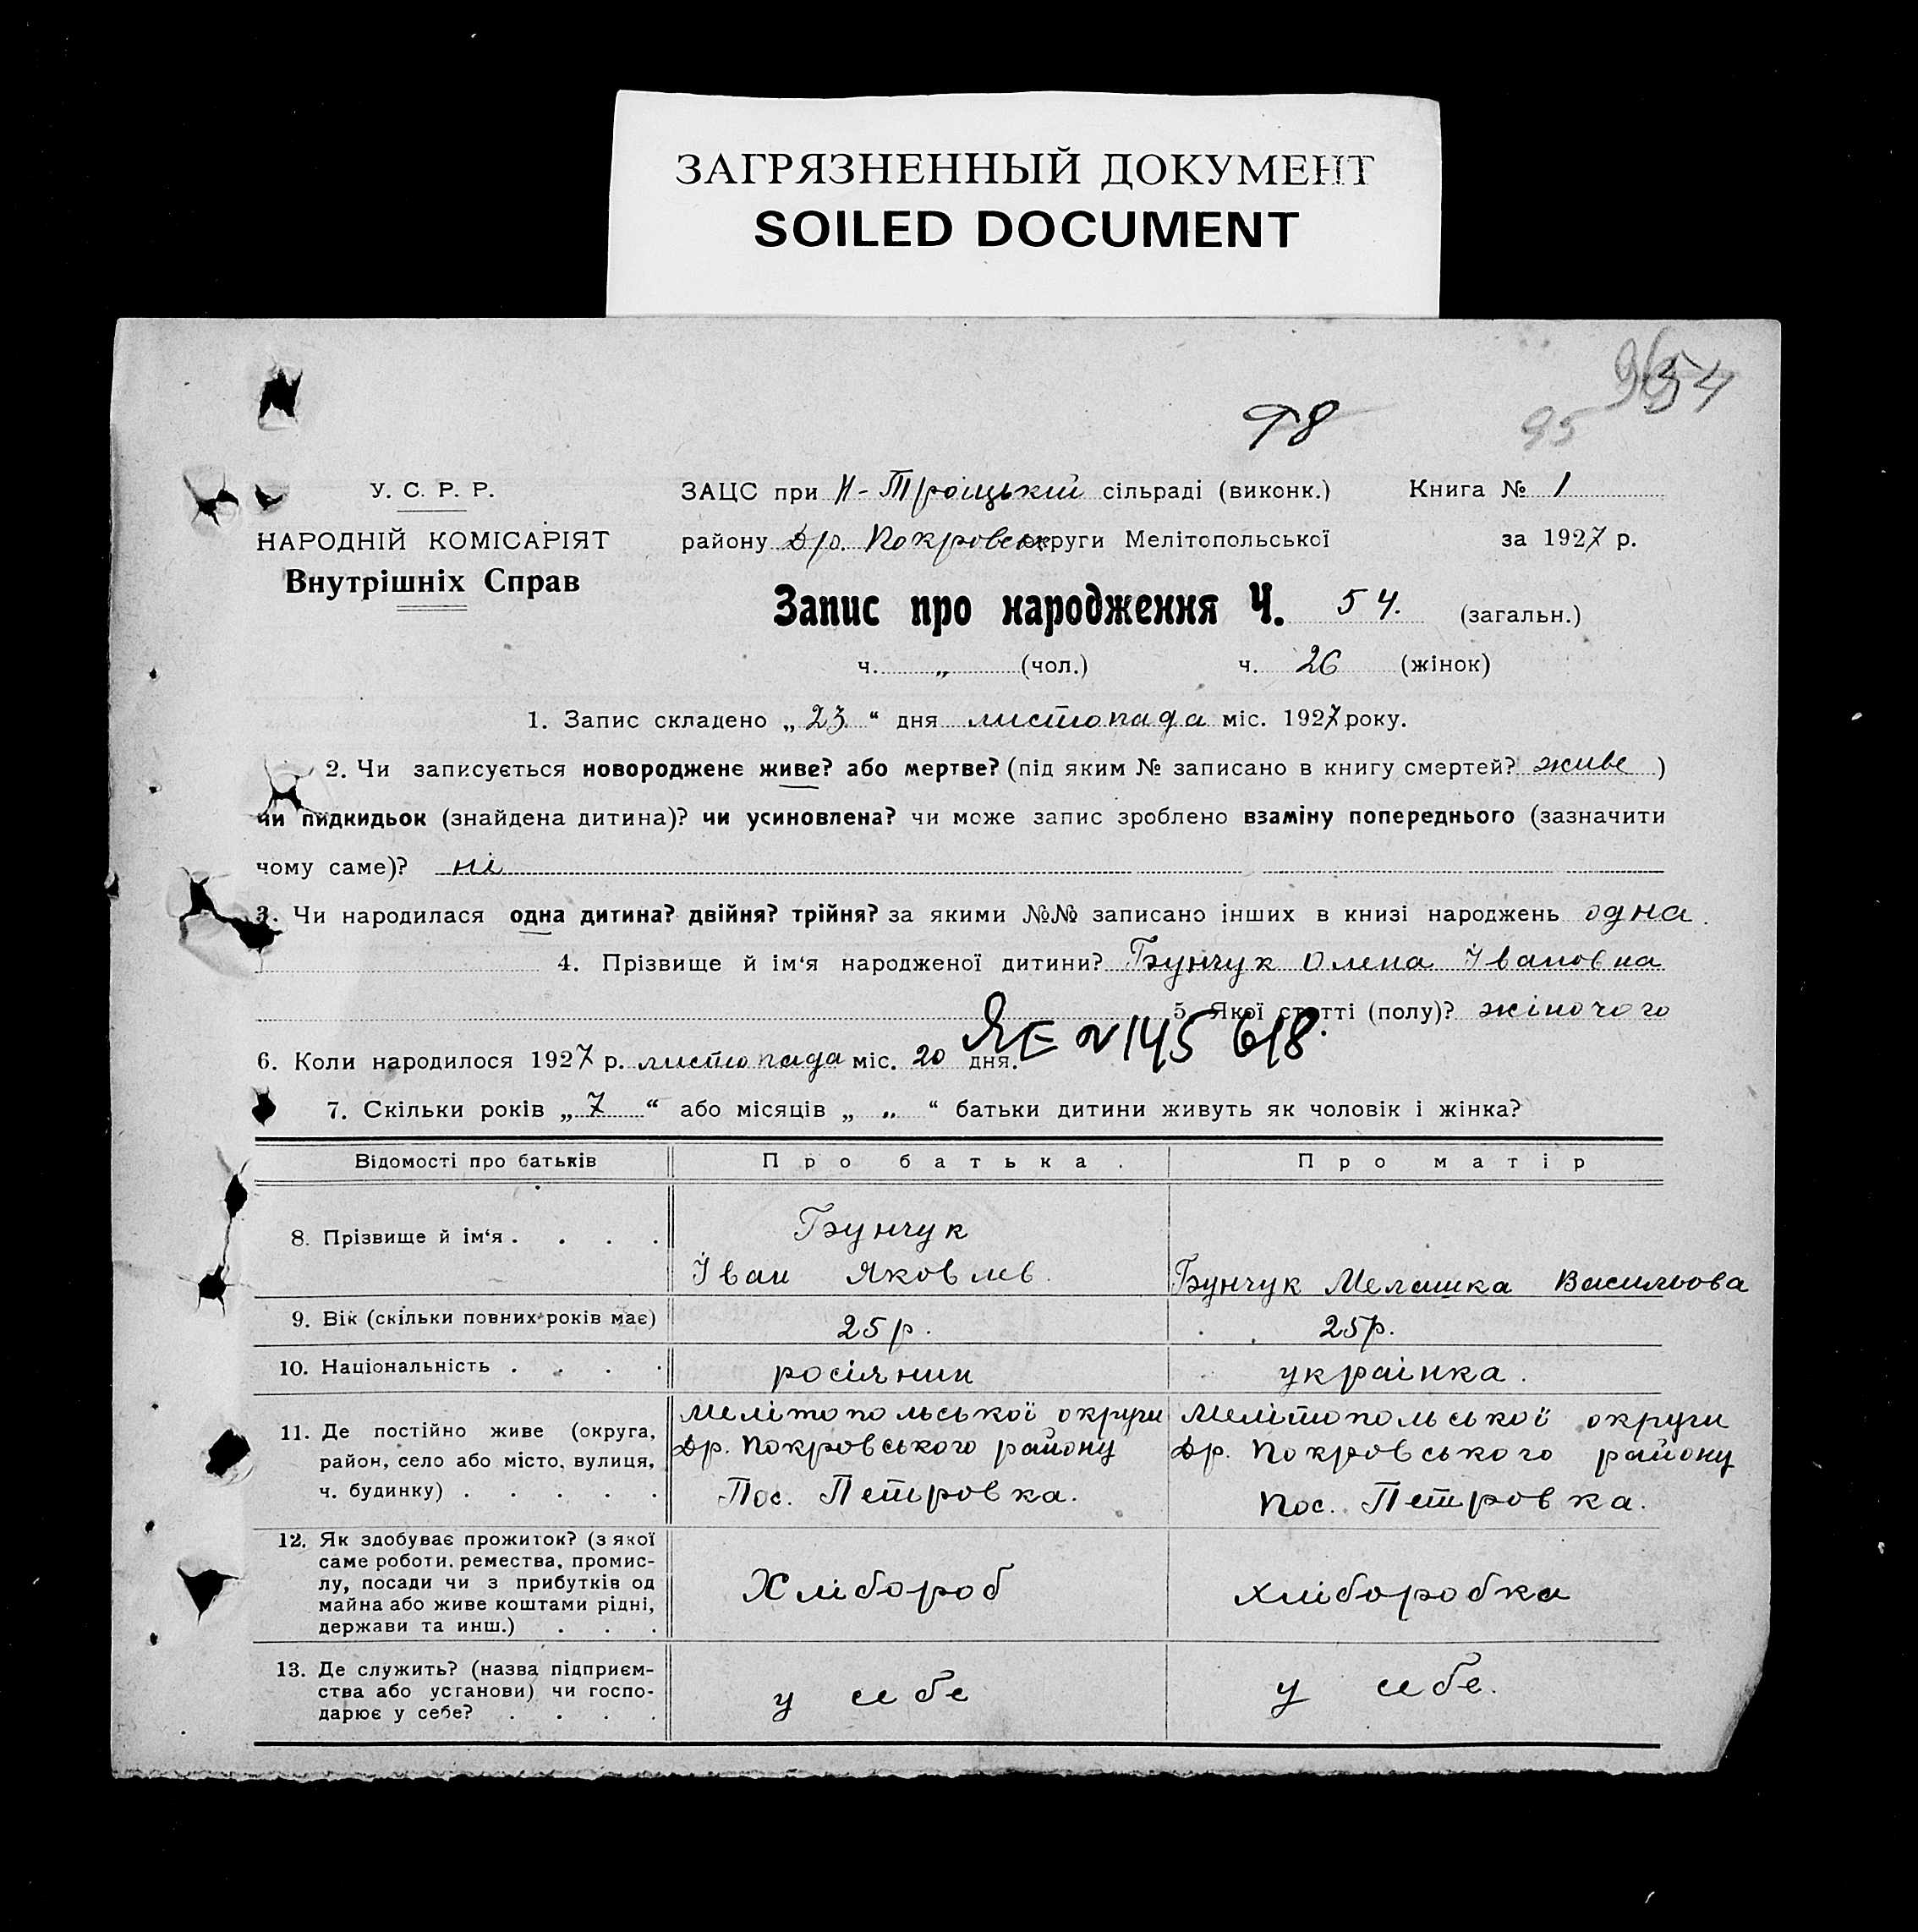 ЗАГРЯЗНЕННЫЙ ДОКУМЕНТ
SOILED DOCUMENT
54
98
95
У. С. Р. Р.
НАРОДНІЙ КОМІСАРІЯТ
Внутрішніх Справ
ЗАЦС при Н-Троіцькій сільраді (виконк.) Книга № 1
району Др. Покровськ округи Мелітопольської за 1927 р.
Запис про народження Ч. 54. (загальн.)
ч. „ (чол.) ч. 26 (жінок)
1. Запис складено „ 23 “ дня листопада міс. 1927 року.
2. Чи записується новороджене живе? або мертве? (під яким № записано в книгу смертей? живе )
чи підкидьок (знайдена дитина)? чи усиновлена? чи може запис зроблено взаміну попереднього (зазначити
чому саме)? ні
3. Чи народилася одна дитина? двійня? трійня? за якими №№ записано інших в книзі народжень одна.
4. Прізвище й ім‘я народженої дитини? Бунчук Олена Івановна
5. Якої статті (полу)? жіночого
ЯЕ N 145 618.
6. Коли народилося 1927 р. листопада міс. 20 дня.
7. Скільки років „ 7 “ або місяців „ „ “ батьки дитини живуть як чоловік і жінка?
Відомості про батьків Про батька. Про матір
8. Прізвище й ім‘я . . . .
Бунчук
Іван Яковлев.
Бунчук Мелашка Васильова
9. Вік (скільки повних років має) 25 р. 25 р.
10. Національність . . . . росіянин украінка.
11. Де постійно живе (округа,
район, село або місто, вулиця,
ч. будинку) . . . . .
Мелітопольської округи
Др. Покровського району
Пос. Петровка.
Мелітопольської округи
Др. Покровського району
Пос. Петровка.
12. Як здобуває прожиток? (з якої
саме роботи, ремества, промис-
лу, посади чи з прибутків од
майна або живе коштами рідні,
держави та инш.) . . .
Хлібороб
хліборобка
13. Де служить? (назва підприєм-
ства або установи) чи госпо-
дарює у себе? . . . .
у себе
у себе.